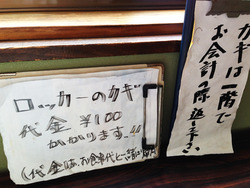 ロッカーのカギ
代金 ¥100
かかります!!
(代金は、お食事代と一緒に
カギは一階で
お会計の際
返し下さい